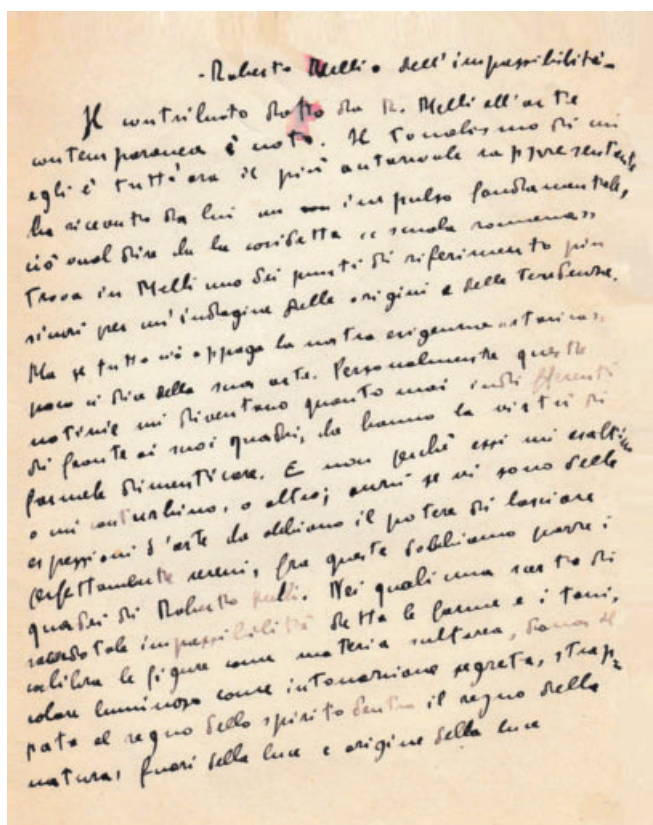 - Roberto Melli o dell'impassibilità -
Il contributo dato da R. Melli all'arte
contemporanea è noto. Il Tonalismo di cui
egli è tutt'ora il più autorevole rappresentante
ha ricevuto da lui un impulso fondamentale,
ciò vuol dire che la cosidetta « scuola romana »
trova in Melli uno dei punti di riferimento più
sicuri per un'indagine delle origini e delle tendenze.
Ma se tutto ciò appaga la nostra esigenza storica,
poco ci dice della sua arte. Personalmente queste
notizie mi diventano quanto mai indifferenti
di fronte ai suoi quadri, che hanno la virtù di
farmele dimenticare. E non perché essi mi esaltino
o mi conturbino, o altro; anzi se vi sono delle
espressioni d'arte che abbiano il potere di lasciare
perfettamente sereni, fra queste dobbiamo porre i
quadri di Roberto Melli. Nei quali una sorta di
sacerdotale impassibilità detta le forme e i toni,
calibra le figure come materia sultorea, dona al
colore luminoso come intonazione segreta, strap-
pata al regno dello spirito dentro il regno della
natura, fuori della luce e origine della luce